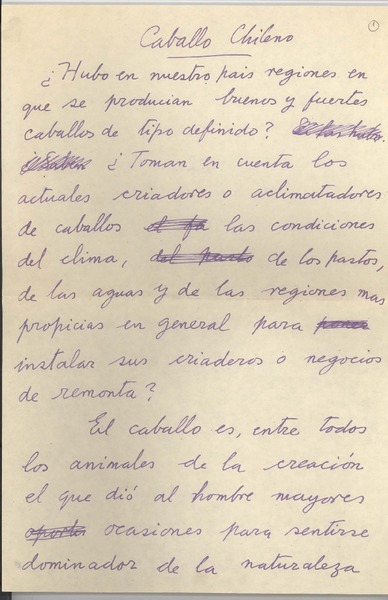 1
Caballo Chileno
¿Hubo en nuestro pais regiones en
que se producian buenos y fuertes
caballos de tipo definido?
¿Toman en cuenta los
actuales criadores o aclimatadores
de caballos las condiciones
del clima, de los pastos,
de las aguas y de las regiones mas
propicias en general para
instalar sus criaderos o negocios
de remonta?
El caballo es, entre todos
los animales de la creación
el que dió al hombre mayores
ocasiones para sentirse
dominador de la naturaleza